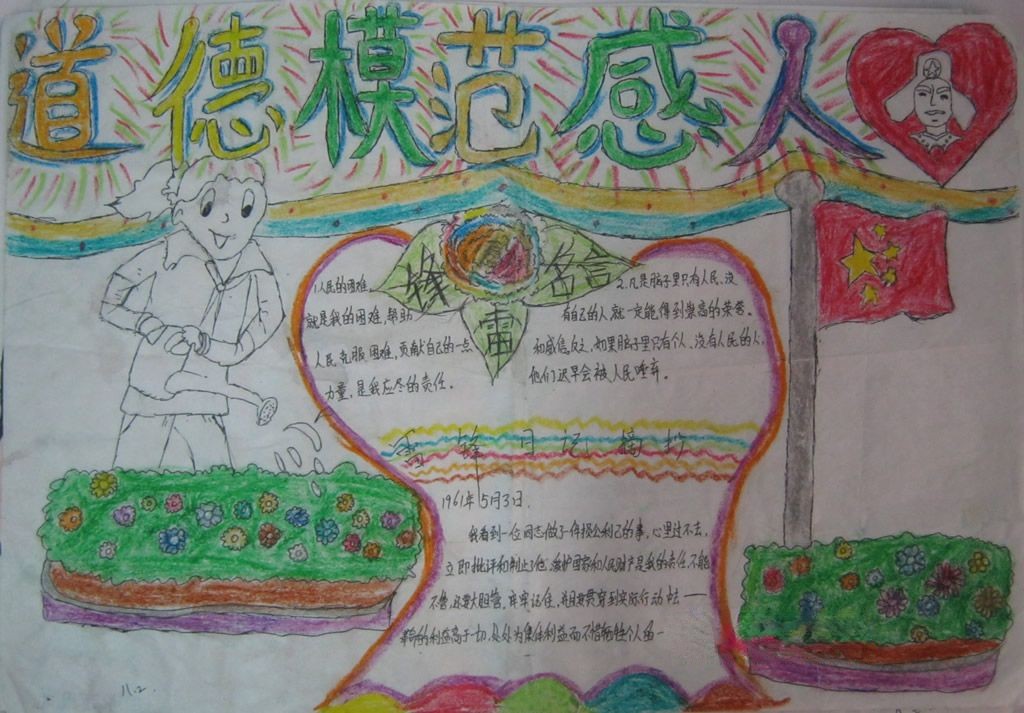 道德模范感人
锋 名言
雷
1.人民的困难,
就是我的困难,帮助
人民克服困难,贡献自己的一点
力量,是我应尽的责任。
2.凡是脑子里只有人民、没
有自己的人就一定能得到崇高的荣誉。
和威信。反之,如果脑子里只有个人、没有人民的人,
他们迟早会被人民唾弃。
雷锋日记摘抄
1961年5月3日.
我看到一位同志做了一件损公利己的事,心里过不去,
立即批评和制止了他。维护国家和人民财产是我的责任,不能
不管,还要大胆管,牢牢记住,并且要贯穿到实际行动中去——
革命的利益高于一切,处处为集体利益而不惜牺牲个人的一
11.2.